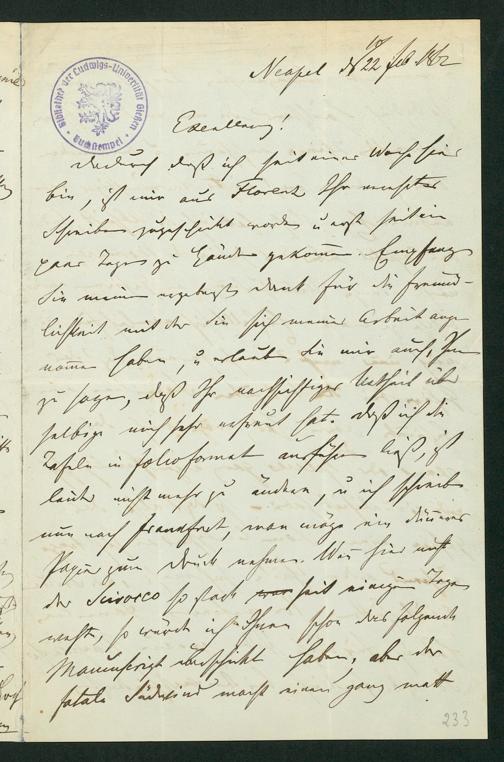 Neapel d 22 Feb 1862
Bibliothek der Ludwigs-Universität Gießen
Buchstempel
Excellenz!
Dadurch daß ich seit einer Woche hier
bin, ist mir aus Florenz Ihr
Schreiben zugeschickt worden u erst seit ein
paar Tagen zu Händen gekommen. Empfangen
Sie meinen ergebensten Dank für die Freund-
lichkeit mit der Sie sich meiner Arbeit ange
nommen haben, u erlauben Sie mir auch, Ihnen
zu sagen, daß Ihr nachsichtiges Urtheil über
selbige mich sehr erfreut hat. Daß ich die
Tafeln in folioformat ausführen ließ, ist
leider nicht mehr zu ändern, u ich schreibe
nun nach Frankfurt, man möge ein dünneres
Papier zum Druck nehmen. Wenn hier nicht
der Scirocco so stark seit einigen Tagen
wehte, so würde ich Ihnen schon das folgende
Manuscript überschickt haben, aber der
fatale Südwind macht einen ganz matt
233